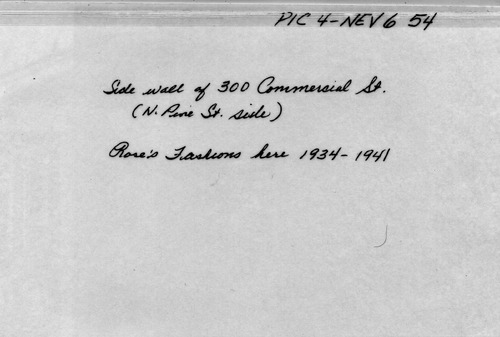 PIC 4-NEV 6 54
Side wall of 300 Commercial St.
(N. Pine St. side)
Rose's Fashions here 1934-1941